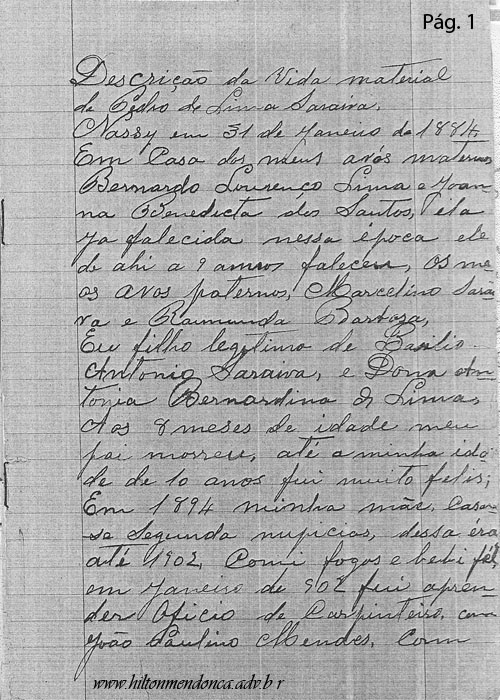 Pág. 1
Descrição da Vida material
de Pedro de Lima Saraiva,
Nassy em 31 de Janeiro de 1884,
Em Casa dos meus avós maternos
Bernardo Lourenço Lima e Joan-
na Benedicta dos Santos, éla
ja falecida nessa época ele
de ahi a 9 annos faleceu, os me
os avos paternos, Marcelino Sarai
va e Raimunda Barboza,
Eu filho legitimo de Basilio
Antonio Saraiva, e Dona An-
tonia Bernardina de Lima,
Aos 8 meses de idade meu
pai morreu, até a minha ida
de de 10 anos fui muito felis,
Em 1894 minha mãe, casou
se Segunda nupicias, dessa éra
até 1902, Comi fogos e bebi fél,
em Janeiro de 902 fui apren-
der Oficio de Carpinteiro, com
João Paulino Mendes, Com
www.hiltonmendonca.adv.b r